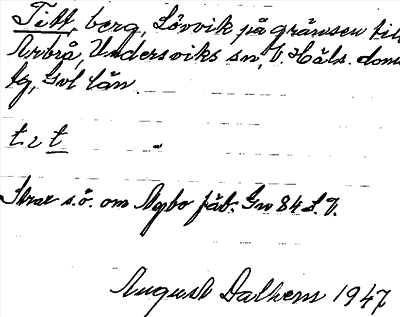 Titt, berg, Lövvik på gränsen till
Arbrå, Undersviks sn, V. Häls. doms
tg, Gvl län.
t ɪ t
Strax s.ö. om Nybo fäb. Gv 84 S.V.
August Dalhem 1947